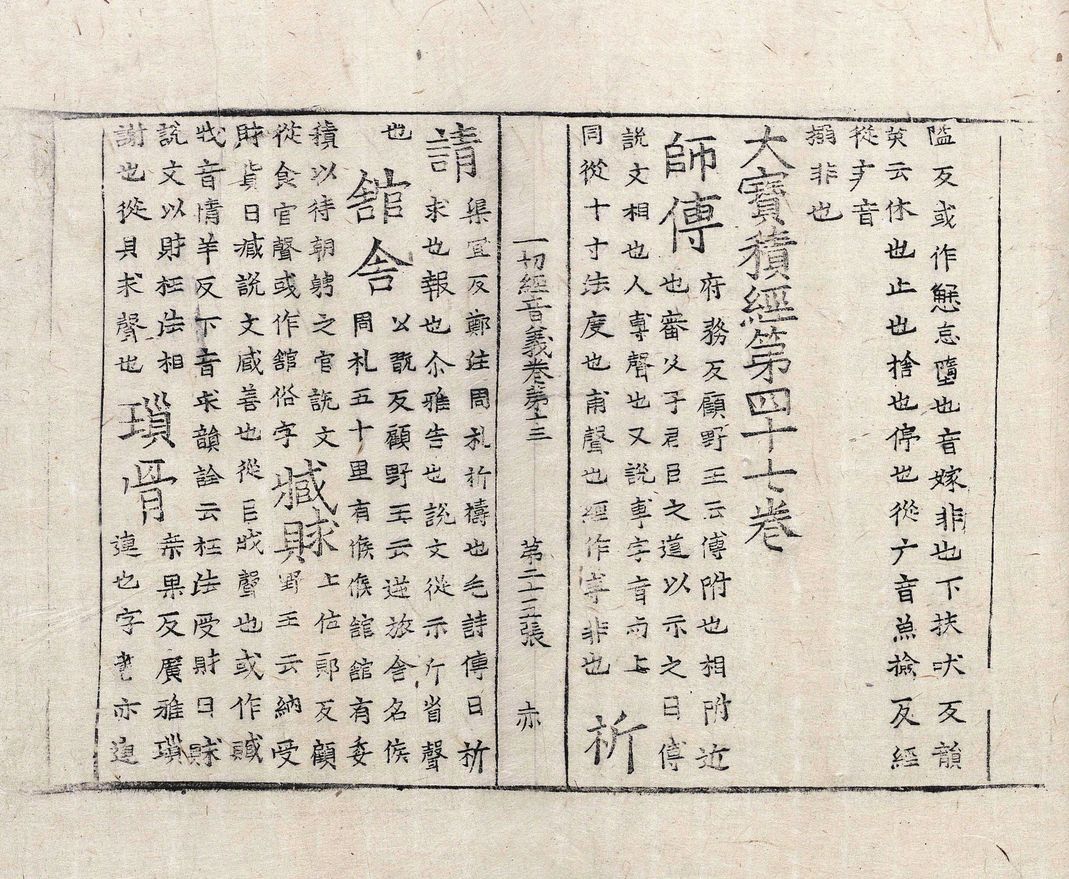 隘反或作懈怠墮也音嫁非也下扶吠反韻
英云休也止也捨也停也從广音魚撿反經
從疒音
搦非也
大寶積經第四十七卷
師傅
府務反顧野王云傅附也相附近
也審父子君臣之道以示之曰傅
說文相也人專聲也又說專字音而上
同從十寸法度也甫聲也經作專非也
祈
一切經音義卷第十三 第二十五張 赤
請
渠宜反鄭注周礼祈禱也毛詩傳曰祈
求也報也尒雅告也說文從示斤省聲
也
舘舍
以既反顧野王云逆旅舍名候
周礼五十里有候候舘舘有委
積以待朝聘之官說文
從食官聲或作舘俗字
臧賕
上佐郎反顧
野王云納受
財貨曰臧說文臧善也從臣戕聲也或作贓
戕音情羊反下音求韻詮云枉法受財曰賕
說文以財枉法相
謝也從貝求聲也
瑣骨
桒果反廣雅瑣
連也字書亦連